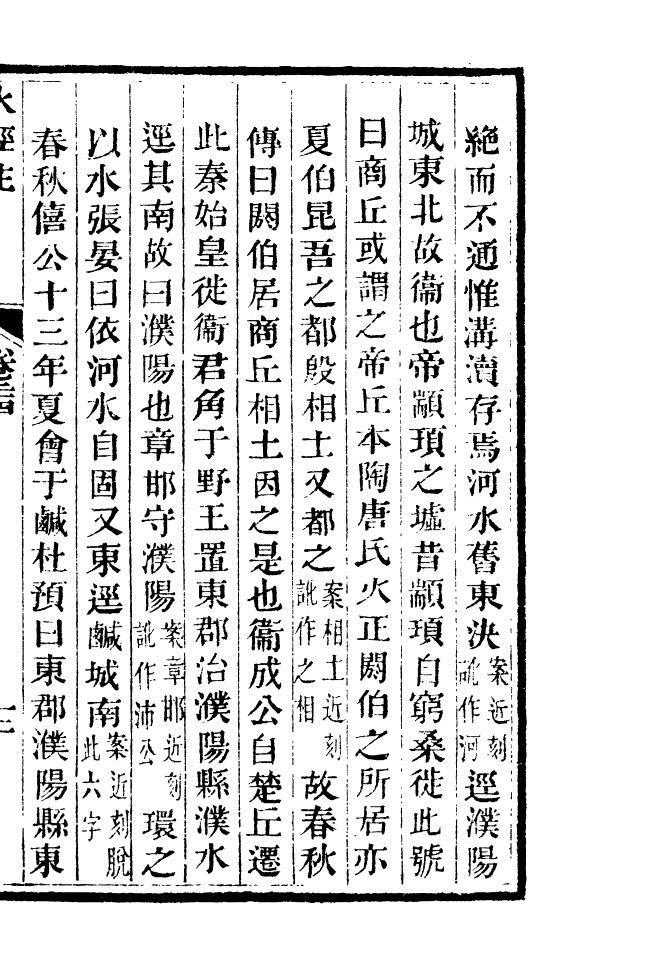 絶而不通惟溝瀆存焉河水舊東決案近刻訛作河逕濮陽
城東北故衞也帝顓頊之墟昔顓頊自窮桑徙此號
曰商丘或謂之帝丘本陶唐氏火正閼伯之所居亦
夏伯昆吾之都殷相土又都之案相土近刻訛作之相故春秋
傳曰閼伯居商丘相土因之是也衞成公自楚丘遷
此秦始皇徙衞君角于野王置東郡治濮陽縣濮水
逕其南故曰濮陽也章邯守濮陽案章邯近刻訛作沛公環之
以水張晏曰依河水自固又東逕鹹城南案近刻脫此六字
春秋僖公十三年夏會于鹹杜預曰東郡濮陽縣東
水經注